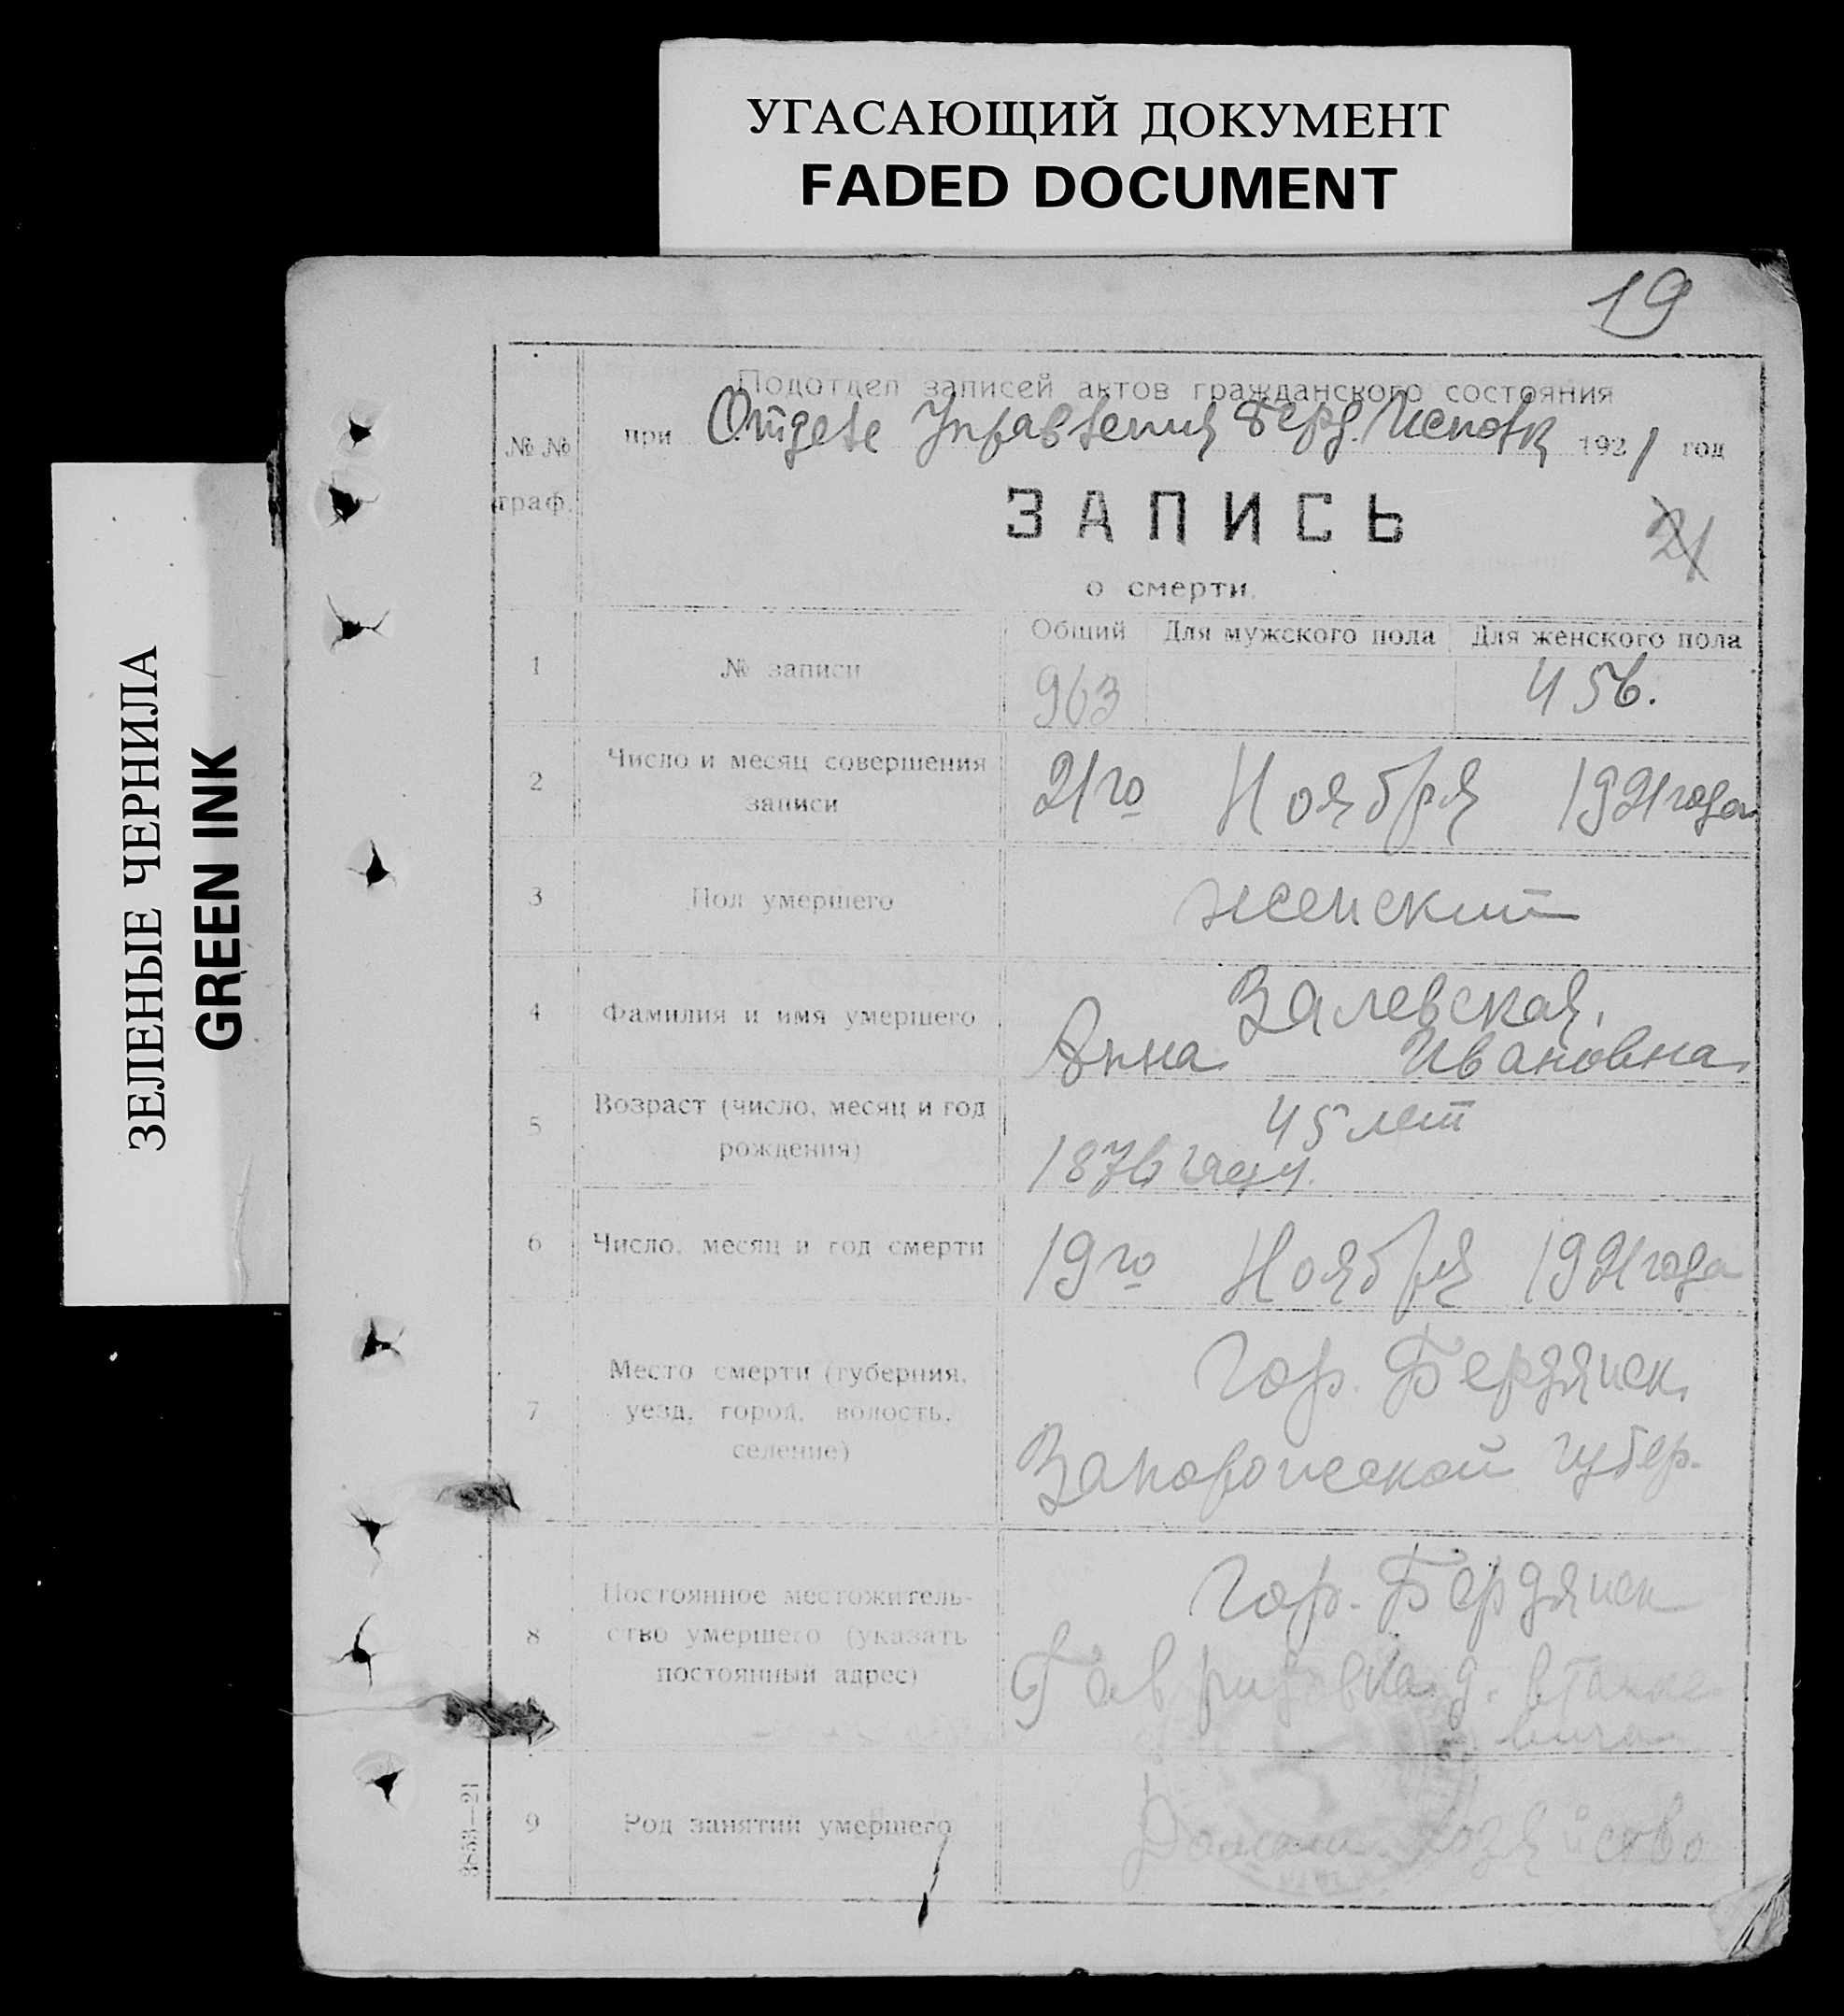 УГАСАЮЩИЙ ДОКУМЕНТ
FADED DOCUMENT
ЗЕЛЕНЫЕ ЧЕРНИЛА
GREEN INK
19
Подотдел записей актов гражданского состояния
№ № граф.
при Отделе Управления Берд. Исполк 1921 год
ЗАПИСЬ
21
о смерти.
Общий Для мужского пола Для женского пола
1 № записи 963 456.
2 Число и месяц совершения
записи
21го Ноября 1921 года
3 Пол умершего женский
4 Фамилия и имя умершего
Валевская,
Анна Ивановна
5 Возраст (число, месяц и год
рождения)
45 лет
1876 году.
6 Число, месяц и год смерти 19го Ноября 1921 года
7 Место смерти (губерния,
уезд, город, волость,
селение)
Гор. Бердянск,
Запорожской губер.
8 Постоянное местожитель-
ство умершего (указать
постоянный адрес)
Гор. Бердянск
д.
9 Род занятий умершего Домаш. хозяйство
3853—21